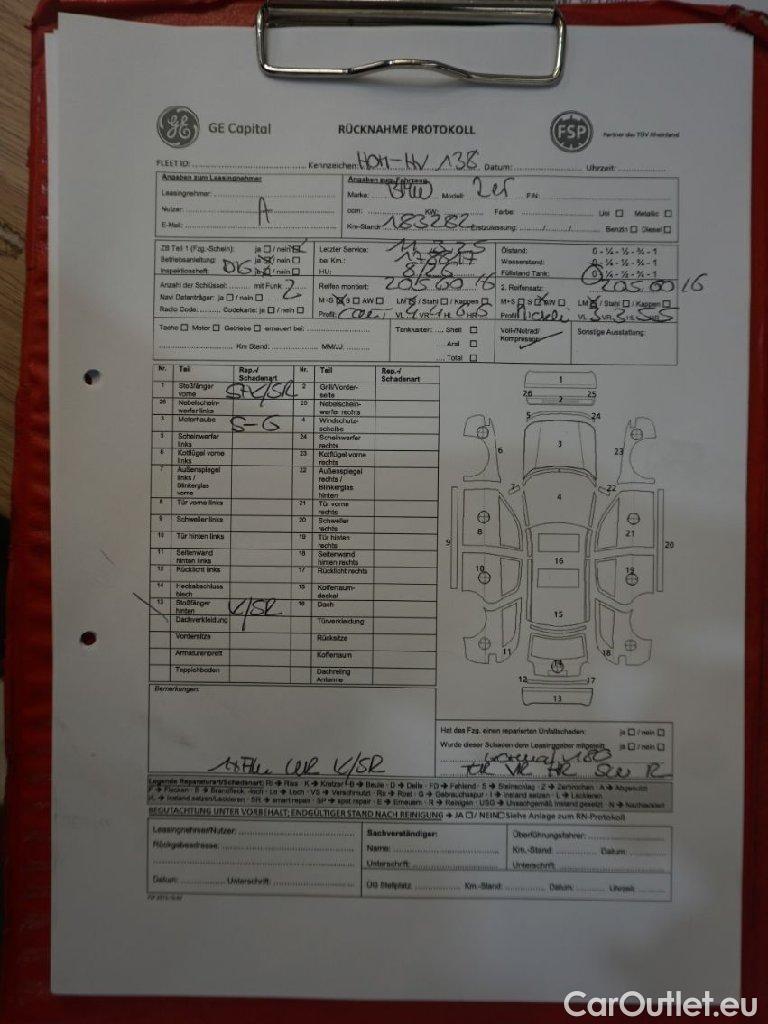 GE Capital RÜCKNAHME PROTOKOLL FSP Partner des TÜV Rheinland
FLEET ID: Kennzeichen: HOM-HV 138 Datum: Uhrzeit:
Angaben zum Leasingnehmer Angaben zum Fahrzeug
Leasingnehmer: Marke: BMW Modell: 2er FIN:
Nutzer: A ccm: KW: Farbe: Uni □ Metallic □
E-Mail: Km-Stand: 183282 Erstzulassung: / / Benzin □ Diesel □
ZB Teil 1 (Fzg.-Schein): ja □ / nein Letzter Service: 11.3.25 Ölstand: 0 - ¼ - ½ - ¾ - 1
Betriebsanleitung: ja / nein □ bei Km.: Wasserstand: 0 - ¼ - ½ - ¾ - 1
Inspektionsheft: DIG ja / nein □ HU: 8/26 Füllstand Tank: 0 - ¼ - ½ - ¾ - 1
Anzahl der Schlüssel: mit Funk: 2 Reifen montiert: 205 60 16 2. Reifensatz: 205 60 16
Navi Datenträger: ja □ / nein □ M+S □ AW □ LM / Stahl □ / Kappen M+S LM / Stahl □ / Kappen □
Radio Code: Codekarte: ja □ / nein □ Profil: VL VR HL HR Profil VL VR HL HR
Tacho □ Motor □ Getriebe □ erneuert bei: Tankkarten: Shell □ Voll-/Notrad/ Kompressor Sonstige Ausstattung:
Aral □
Km Stand: MM/J: Total □
Nr. Teil Rep.-/ Schadenart Nr. Teil Rep.-/ Schadenart
1 Stoßfänger vorne 2 Grill/Vorderseite
26 Nebelscheinwerfer links 25 Nebelscheinwerfer rechts
3 Motorhaube S-G 4 Windschutzscheibe
5 Scheinwerfer links 24 Scheinwerfer rechts
6 Kotflügel vorne links 23 Kotflügel vorne rechts
7 Außenspiegel links / Blinkerglas vorne 22 Außenspiegel rechts / Blinkerglas hinten
8 Tür vorne links 21 Tür vorne rechts
9 Schweller links 20 Schweller rechts
10 Tür hinten links 19 Tür hinten rechts
11 Seitenwand hinten links 18 Seitenwand hinten rechts
12 Rücklicht links 17 Rücklicht rechts
14 Heckabschlussblech 15 Kofferraumdeckel
13 Stoßfänger hinten K/SR 16 Dach
Dachverkleidung Türverkleidung
Vordersitze Rücksitze
Armaturenbrett Kofferraum
Teppichboden Dachreling Antenne
1
26 2 25
5 24
6 3 23
7 22
4
9 8 21 20
10 16 19
15
11 14 18
12 17
13
Bemerkungen:
K/SR
Hat das Fzg. einen reparierten Unfallschaden: ja □ / nein □
Wurde dieser Schaden dem Leasinggeber mitgeteilt ja □ / nein □
VR HR
Legende Reparaturart/Schadenart: Ri → Riss K → Kratzer B → Beule D → Delle FD → Fehlend S → Steinschlag Z → Zerbrochen A → Abgenutzt
F → Flecken Lo → Loch VS → Verschmutzt Ro → Rost G → Gebrauchsspur I → Instand setzen L → Lackieren
IL → Instand setzen/Lackieren SR → smart repair SP → spot repair E → Erneuern R → Reinigen USG → Unsachgemäß instand gesetzt N → Nachlackiert
BEGUTACHTUNG UNTER VORBEHALT; ENDGÜLTIGER STAND NACH REINIGUNG → JA □ / NEIN □ Siehe Anlage zum RN-Protokoll
Leasingnehmer/Nutzer: Sachverständiger: Überführungsfahrer:
Rückgabeadresse: Name: Km.-Stand: Datum:
Unterschrift: Unterschrift:
Datum: Unterschrift: ÜG Stellplatz: Km.-Stand: Datum: Uhrzeit:
CarOutlet.eu